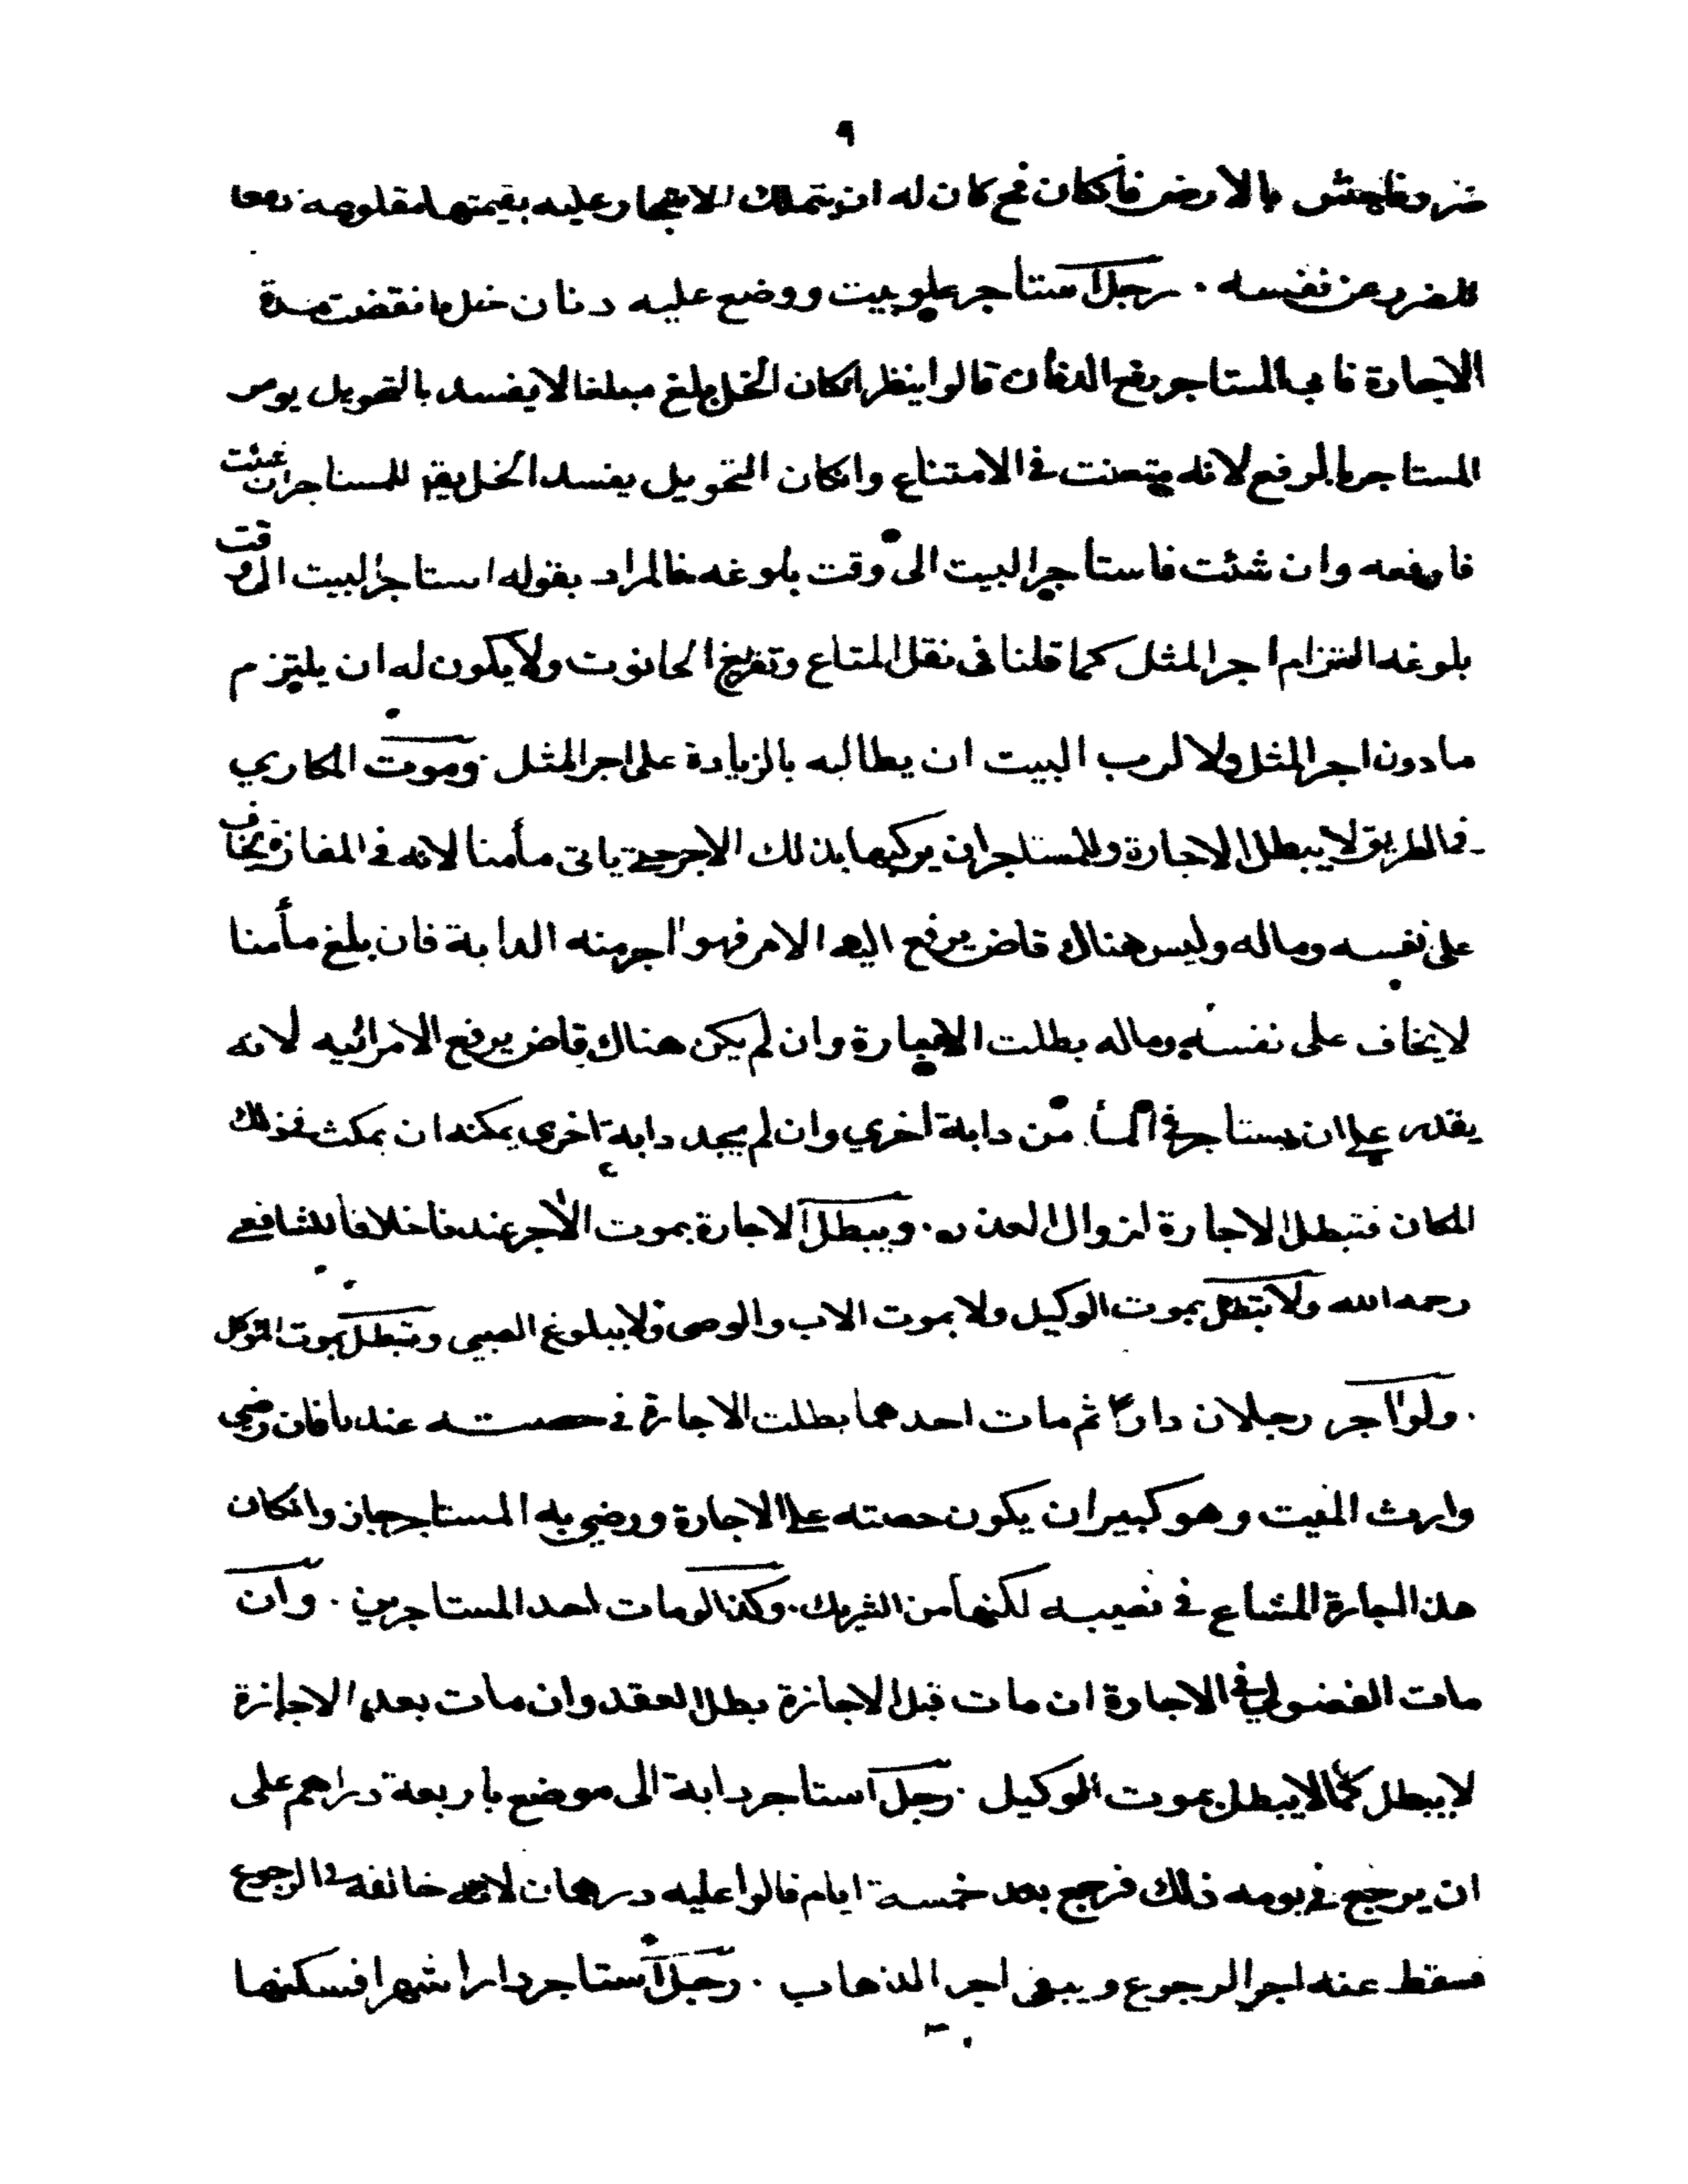 ٩
ضرر فاحش بالارض فانكان فح كان له ان يتملك الاشجار عليه بقيتمها مقلوعة دفعا
للضرر عن نفسه . رجل استأجر علو بيت ووضع عليه دنان خل فانقضت مدة
الاجارة فابى المستاجر رفع الدنان قالوا ينظر انكان الخل بلغ مبلغا لا يفسد بالتحويل يومر
المستاجر بالرفع لانه متعنت في الامتناع وانكان التحويل يفسد الخل يقال للمستاجر ان شئت
فارفعه وان شئت فاستأجر البيت الى وقت بلوغه فالمراد بقوله استاجر البيت الى وقت
بلوغه التزام اجر المثل كما قلنا في نقل المتاع وتفريغ الحانوت ولا يكون له ان يلتزم
مادون اجر المثل ولا لرب البيت ان يطالبه بالزيادة على اجر المثل . وموت المكاري
في الطريق لا يبطل الاجارة وللمستاجر ان يركبها بذلك الاجر حتى ياتى مأمنا لانه في المفازة يخاف
على نفسه وماله وليس هناك قاض يرفع اليه الامر فهو اجر منه الدابة فان بلغ مأمنا
لا يخاف على نفسه وماله بطلت الاجارة وان لم يكن هناك قاض يرفع الامر اليه لانه
يقدر على ان يستاجر في المأمن دابة اخري وان لم يجد دابة اخرى يمكنه ان يمكث في ذلك
المكان فتبطل الاجارة لزوال العذر . ويبطل الاجارة بموت الآجر عندنا خلافا للشافعي
رحمه الله ولا تبطل بموت الوكيل ولا بموت الاب والوصى ولا ببلوغ الصبي وتبطل بموت الموكل
. ولو آجر رجلان دارا ثم مات احدهما بطلت الاجارة في حصته عندنا فان رضي
وارث الميت وهو كبير ان يكون حصته على الاجارة ورضي به المستاجر جاز وانكان
هذا اجارة المشاع في نصيبه لكنها من الشريك . وكذا لو مات احد المستاجرين . وان
مات الفضولي في الاجارة ان مات قبل الاجازة بطل العقد وان مات بعد الاجازة
لا يبطل كما لا يبطل بموت الوكيل . رجل استاجر دابة الى موضع باربعة دراهم على
ان يرجع في يومه ذلك فرجع بعد خمسة ايام قالوا عليه درهمان لانه خالفه في الرجوع
فسقط عنه اجر الرجوع ويبقى اجر الذهاب . رجل استاجر دارا شهرا فسكنها